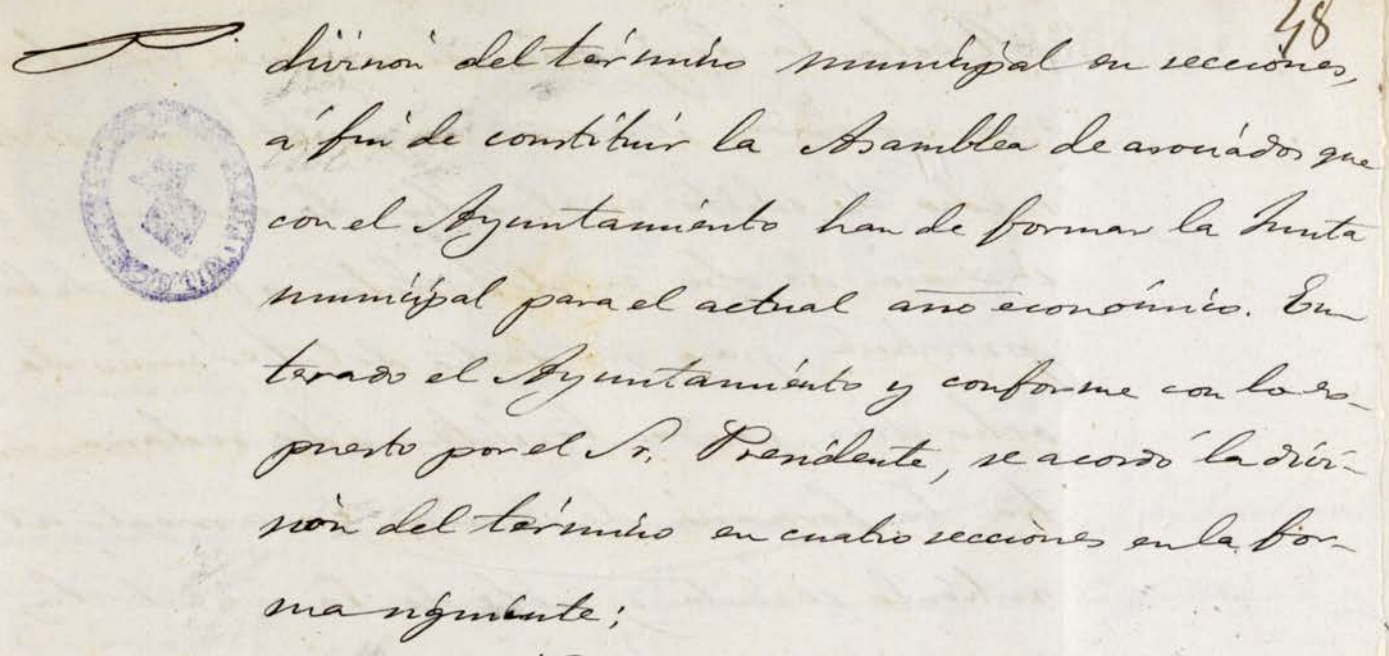 48
división del término municipal en secciones,
á fin de constituir la Asamblea de asociados que
con el Ayuntamiento han de formar la Junta
municipal para el actual año económico. En-
terado el Ayuntamiento y conforme con lo es-
puesto por el Sr. Presidente, se acordó la divi-
sión del término en cuatro secciones en la for-
ma siguiente;